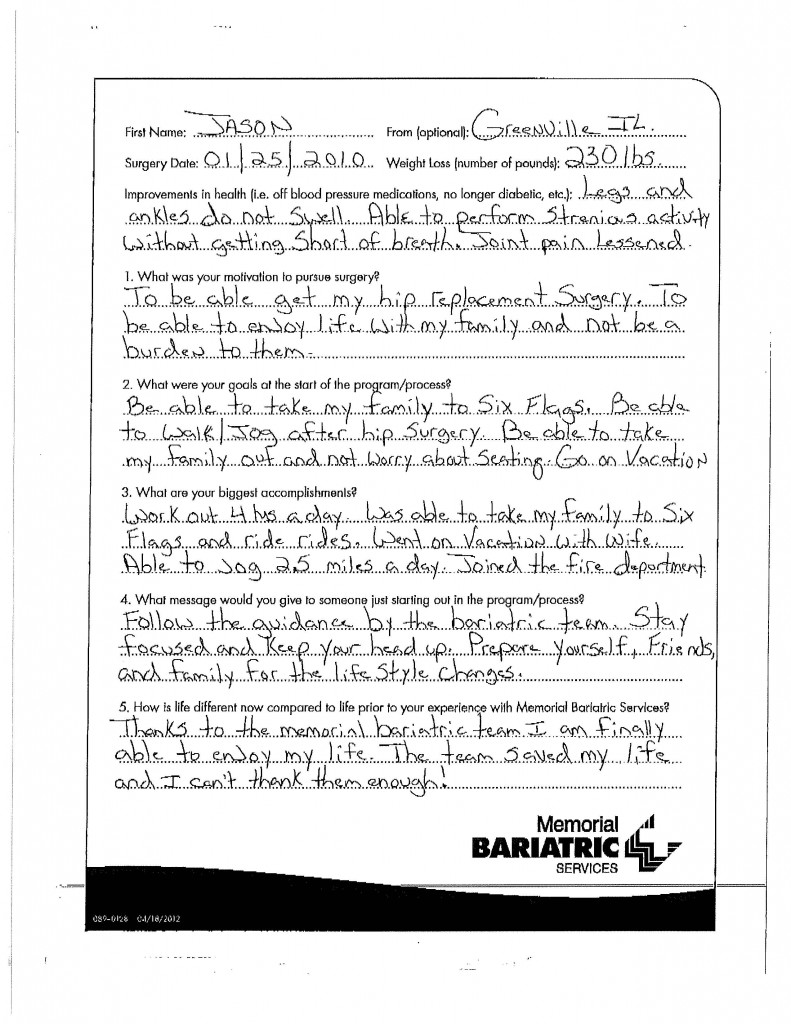 First Name: JASON From (optional): Greenville IL.
Surgery Date: 01/25/2010 Weight Loss (number of pounds): 230 lbs.
Improvements in health (i.e. off blood pressure medications, no longer diabetic, etc.): Legs and
ankles do not Swell. Able to perform Strenious activity
Without getting Short of breath. Joint pain Lessened.
1. What was your motivation to pursue surgery?
To be able get my hip replacement Surgery. To
be able to enjoy life with my family and not be a
burden to them.
2. What were your goals at the start of the program/process?
Be able to take my family to Six Flags. Be able
to Walk/Jog after hip Surgery. Be able to take
my family out and not worry about Seating. Go on Vacation
3. What are your biggest accomplishments?
Work out 4 hrs a day. Was able to take my family to Six
Flags and ride rides. Went on Vacation with wife.
Able to Jog 2.5 miles a day. Joined the fire department.
4. What message would you give to someone just starting out in the program/process?
Follow the guidance by the bariatric team. Stay
focused and Keep your head up. Prepare yourself, Friends,
and family for the life Style changes.
5. How is life different now compared to life prior to your experience with Memorial Bariatric Services?
Thanks to the memorial bariatric team I am finally
able to enjoy my life. The team saved my life
and I can't thank them enough!
Memorial
BARIATRIC
SERVICES
089-0128 04/18/2012